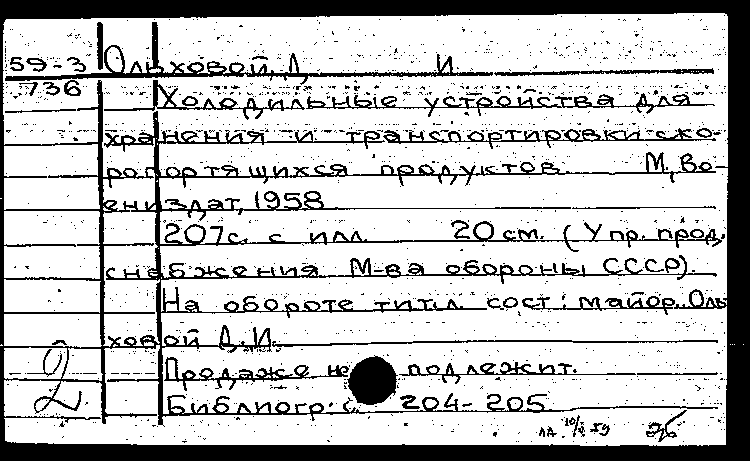 59-3 Ольховой, Д И
736
Холодильные устройства для
хранения и транспортировки ско-
ропортящихся продуктов. М, Во-
ениздат, 1958
207с. с илл. 20 см. (Упр. прод.
снабжения М-ва обороны СССР).
На обороте титл. сост: майор. Оль
ховой Д.И.
Продаже не подлежит.
2
Библиогр: с. 204-205